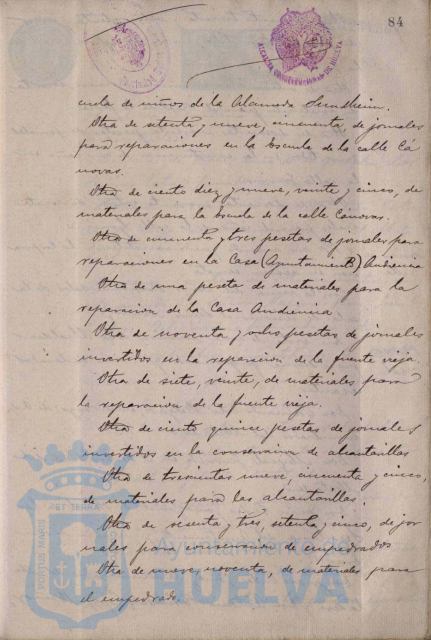 84
ALCALDIA CONSTITUCIONAL DE HUELVA
cuela de niños de la Alameda Sundheim.
Otra de setenta y nueve, cincuenta, de jornales
para reparaciones en la Escuela de la calle Cá
novas.
Otra de ciento diez y nueve, veinte y cinco, de
materiales para la Escuela de la calle Canovas.
Otra de cincuenta y tres pesetas de jornales para
reparaciones en la Casa (Ayuntamiento) Audiencia
Otra de una peseta de materiales para la
reparacion de la Casa Audiencia
Otra de noventa y ocho pesetas de jornales
invertidos en la reparacion de la fuente vieja.
Otra de siete, veinte, de materiales para
la reparacion de la fuente vieja.
Otra de ciento quince pesetas de jornales
invertidos en la conservacion de alcantarillas
Otra de trescientas nueve, cincuenta y cinco,
de materiales para las alcantarillas.
Otra de sesenta y tres, setenta y cinco, de jor
nales para conservacion de empedrados
Otra de nueve, noventa, de materiales para
el empedrado.
PORTUS MARIS ET TERRAE
Ayuntamiento de
HUELVA